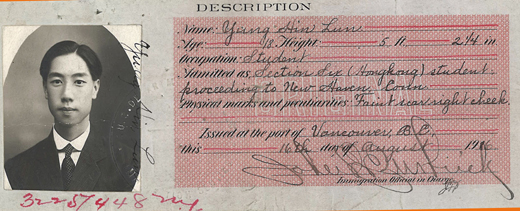 DESCRIPTION
Name: Yang Hin Lun
Age: 18 Height: 5 ft. 2 1/4 in
Occupation: Student
Admitted as Section Six (Hongkong) student
proceeding to New Haven, Conn.
Physical marks and peculiarities: Faint scar right cheek.
Issued at the port of Vancouver, B.C.
this 16th day of August 1916
Immigration Official in Charge